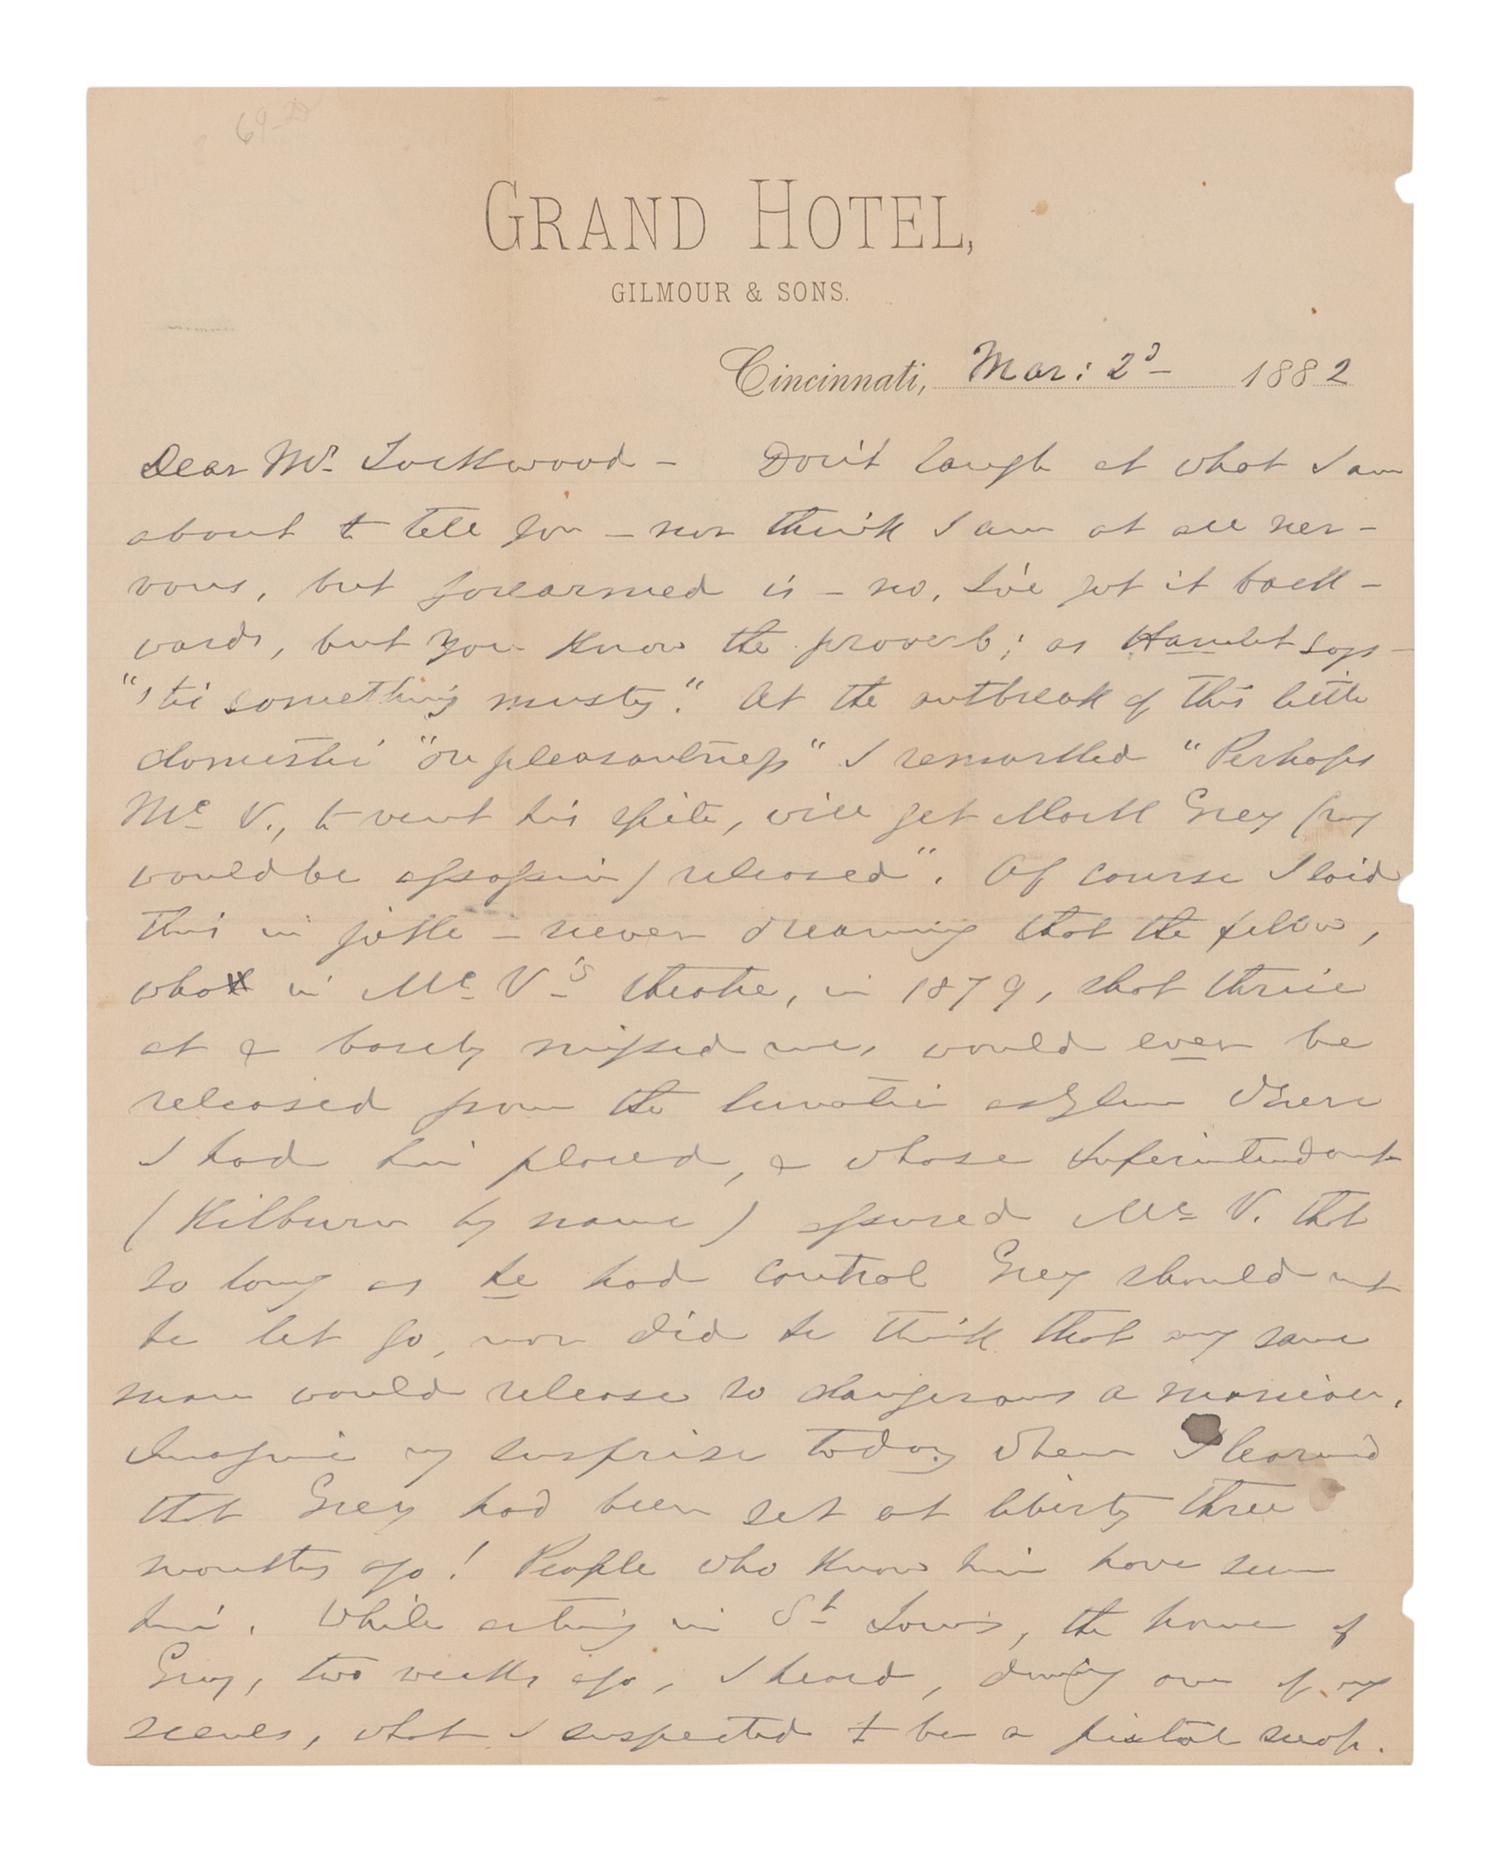 69-
GRAND HOTEL,
GILMOUR & SONS.
Cincinnati, Mar: 2d 1882
Dear Mr. Lockwood - Don't laugh at what I am
about to tell you - nor think I am at all ner-
vous, but forearmed is - no, I've got it back-
wards, but you know the proverb; as Hamlet says -
"'tis something musty." At the outbreak of this little
domestic "onpleasantness" I remarked "Perhaps
Mc V., to vent his spite, will get Mark Grey (my
would be assassin) released". Of course I said
this in joke - never dreaming that the fellow,
who in Mc V's theatre, in 1879, shot thrice
at & barely missed me, would ever be
released from the lunatic asylum where
I had him placed, & whose Superintendant
(Kilburn by name) assured Mc V. that
so long as he had control Grey should not
be let go, nor did he think that any sane
man would release so dangerous a maniac.
Imagine my surprise today when I learned
that Grey had been set at liberty three
months ago! People who know him have seen
him. While acting in St Louis, the home of
Grey, two weeks ago, I heard, during one of my
scenes, what I suspected to be a pistol snap.